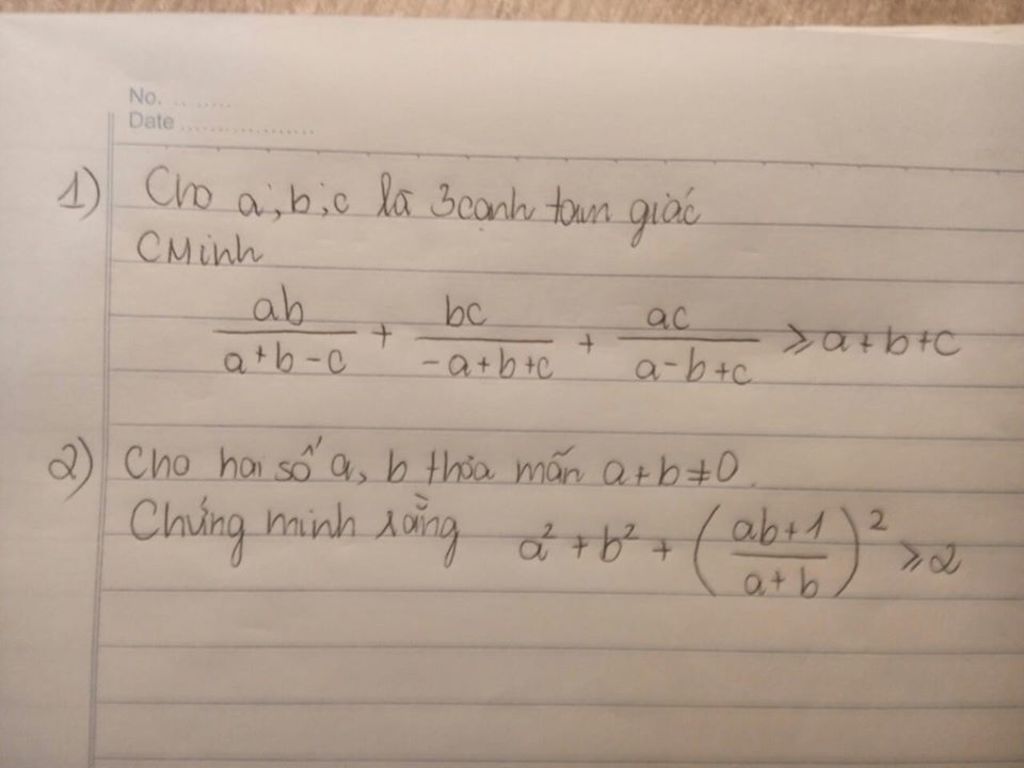 No. ........
Date ..................
1) Cho a; b; c là 3 cạnh tam giác
CMinh
ab/(a+b-c) + bc/(-a+b+c) + ac/(a-b+c) ⩾ a+b+c
2) Cho hai số a, b thỏa mãn a+b≠0.
Chứng minh rằng a² + b² + ((ab+1)/(a+b))² ⩾ 2